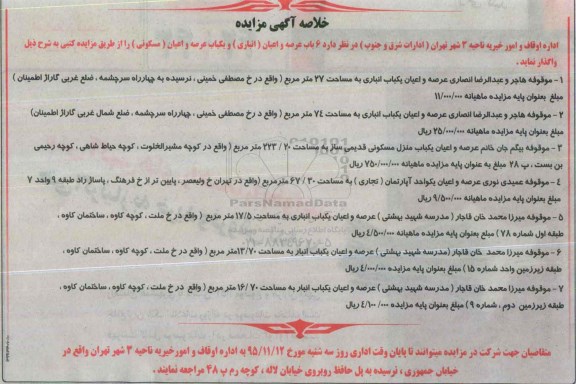 خلاصه آگهی مزایده
اداره اوقاف و امور خیریه ناحیه ۳ شهر تهران ( ادارات شرق و جنوب ) در نظر دارد ۶ باب عرصه و اعیان ( انباری ) و یکباب عرصه و اعیان ( مسکونی ) را از طریق مزایده کتبی به شرح ذیل
واگذار نماید .
۱ – موقوفه هاجر و عبدالرضا انصاری عرصه و اعیان یکباب انباری به مساحت ۲۷ متر مربع ( واقع در خ مصطفی خمینی ، نرسیده به چهارراه سرچشمه ، ضلع غربی گاراژ اطمینان )
مبلغ بعنوان پایه مزایده ماهیانه ۱۱/۰۰۰/۰۰۰
۲ – موقوفه هاجر و عبدالرضا انصاری عرصه و اعیان یکباب انباری به مساحت ۷٤ متر مربع ( واقع در خ مصطفی خمینی ، چهارراه سرچشمه ، ضلع شمال غربی گاراژ اطمینان)
مبلغ بعنوان پایه مزایده ماهیانه ۲۵/۰۰۰/۰۰۰ ریال
۳ – موقوفه بیگم جان خانم عرصه و اعیان یکباب منزل مسکونی قدیمی ساز به مساحت ۲۰ / ۲۲۳ متر مربع ( واقع در کوچه مشیرالخلوت ، کوچه حیاط شاهی ، کوچه رحیمی
بن بست ، پ ۲۸ مبلغ به عنوان پایه مزایده ماهیانه ۷۵۰/۰۰۰/۰۰۰ ریال
٤ – موقوفه عمیدی نوری عرصه و اعیان یکواحد آپارتمان ( تجاری ) به مساحت ۳۰ / ۶۷ مترمربع (واقع در تهران خ ولیعصر ، پایین تر از خ فرهنگ ، پاساژ زاد طبقه ۹ واحد ۷
) مبلغ بعنوان پایه مزایده ماهیانه ۹/۵۰۰/۰۰۰ ریال
ParsNamadData
۵ – موقوفه میرزا محمد خان قاجار (مدرسه شهید بهشتی ) عرصه و اعیان یکباب انباری به مساحت ۱۷/۵ متر مربع ( واقع در خ ملت ، کوچه کاوه ، ساختمان کاوه ،
طبقه اول شماره ۷۸ ) مبلغ به عنوان پایه مزایده ماهیانه ٤/۵۰۰/۰۰۰ ریال
۶ – موقوفه میرزا محمد خان قاجار (مدرسه شهید بهشتی ) عرصه و اعیان یکباب انبار به مساحت ۱۳/۷۰متر مربع ( واقع در خ ملت ، کوچه کاوه ، ساختمان کاوه ،
طبقه زیرزمین واحد شماره ۱۵ ) مبلغ بعنوان پایه مزایده ٤/۰۰۰/۰۰۰ ریال
۷ – موقوفه میرزا محمد خان قاجار ( مدرسه شهید بهشتی ) عرصه و اعیان یکباب انبار به مساحت ۷۰ /۱۶ متر مربع ( واقع در خ ملت ، کوچه کاوه ، ساختمان کاوه ،
طبقه زیرزمین دوم ، شماره ۹ ) مبلغ بعنوان پایه مزایده ٤/۱۰۰/۰۰۰ ریال
متقاضیان جهت شرکت در مزایده میتوانند تا پایان وقت اداری روز سه شنبه مورخ ۹۵/۱۱/۱۲ به اداره اوقاف و امورخیریه ناحیه ۳ شهر تهران واقع در
خیابان جمهوری ، نرسیده به پل حافظ روبروی خیابان لاله ، کوچه رم پ ۴۸ مراجعه نمایند .